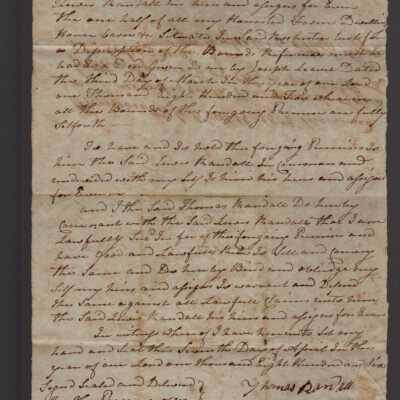 Lewis Randall his heirs and assigns for Ever
the one half of all my Homested Farm Dwelling
House Barn & Situate
a Description of the Bounds Reference must be
had to a Deed Given me by Joseph Dated
the third Day of March in the year of our Lord
one Thousand Eight Hundred and wherein
all the Bounds of the forgoing Premises are fully
Setforth
To have and to hold the forgoing Premises to
him the Said Lewis Randall in Common and
undivided with my Self to him his heirs and assigns
for Evermore
and I the Said Thomas Randall Do hereby
Covenant with the Said Lewis Randall that I am
Lawfully of the forgoing Premises and
have Good and Lawfull Right to Sell and Convey
the Same and Do hereby Bind and oblidge my
Self my heirs and assigns to warrant and Defend
the Same against all Lawfull Claims unto him
the Said Lewis Randall his heirs and assigns for Ever
In witness where of I have hereunto Set my
hand and Seal this Seventh Day of April in the
year of our Lord one thousand Eight Hundred and Six
Signd Seald and Deliverd
Thomas Randall